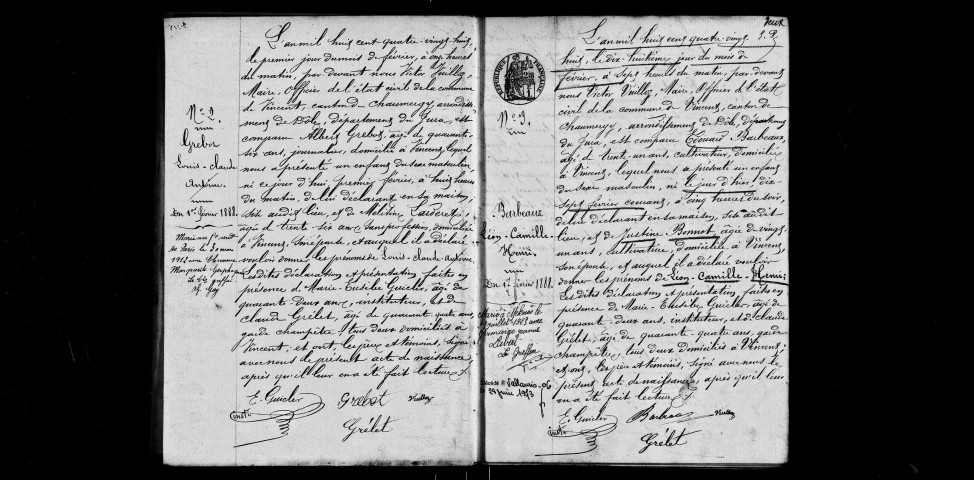 N° 2.
Grebot
Louis-claude
Antoine.
Du 1er février 1888.
L'an mil huit cent quatre-vingt-huit,
le premier jour du mois de février, à onze heures
du matin, par devant nous Victor Vuillez,
Maire, Officier de l'état civil de la commune
de Vincent, canton de Chaumergy, arrondisse-
ment de Dôle, département du Jura, est
comparu Albert Grebot, âgé de quarante-
six ans, journalier, domicilié à Vincent, lequel
nous a présenté un enfant du sexe masculin,
né ce jour d'hui premier février, à huit heures
du matin, de lui déclarant en sa maison,
sise audit lieu, et de
âgée de trente-six ans, sans profession, domiciliée
à Vincent, son épouse, et auquel il a déclaré
vouloir donner les prénoms de Louis-claude-Antoine.
Lesdites déclaration et présentation faites en
présence de Marie Guicler, âgé de
quarante-deux ans, instituteur, et de
claude Grélet, âgé de quarante-quatre ans,
garde champêtre, tous deux domiciliés à
Vincent; et ont, les père et témoins, signé
avec nous le présent acte de naissance,
après qu'il leur en a été fait lecture.
E. Guicler Grebot Vuillez
inst. Grélet
deux
RÉPUBLIQUE FRANÇAISE
N° 3.
Barbeaux
Léon-Camille-
Henri.
Du 17 février 1888.
Marié à
juillet 1913 avec
Jeanne
Le Greffier
Décédé à Vallauris - 06
L'an mil huit cent quatre-vingt-
huit, le dix-huitième jour du mois de
février, à sept heures du matin, par devant
nous Victor Vuillez, Maire, Officier de l'état
civil de la commune de Vincent, canton de
Chaumergy, arrondissement de Dôle, département
du Jura, est comparu Edouard Barbeaux,
âgé de trente-un ans, cultivateur, domicilié
à Vincent, lequel nous a présenté un enfant
du sexe masculin, né le jour d'hier dix-
sept février courant, à cinq heures du soir,
de lui déclarant en sa maison, sise audit
lieu, et de Justine Bonnot âgée de vingt-
un ans, cultivatrice, domiciliée à Vincent,
son épouse, et auquel il a déclaré vouloir
donner les prénoms de Léon-Camille-Henri;
lesdites déclaration et présentation faites en
présence de Marie Guicler, âgé de
quarante-deux ans, instituteur, et de claude
Grélet, âgé de quarante-quatre ans, garde
champêtre, tous deux domiciliés à Vincent;
et ont, les père et témoins, signé avec nous le
présent acte de naissance, après qu'il leur
en a été fait lecture.
E. Guicler Barbeaux Vuillez
inst. Grélet